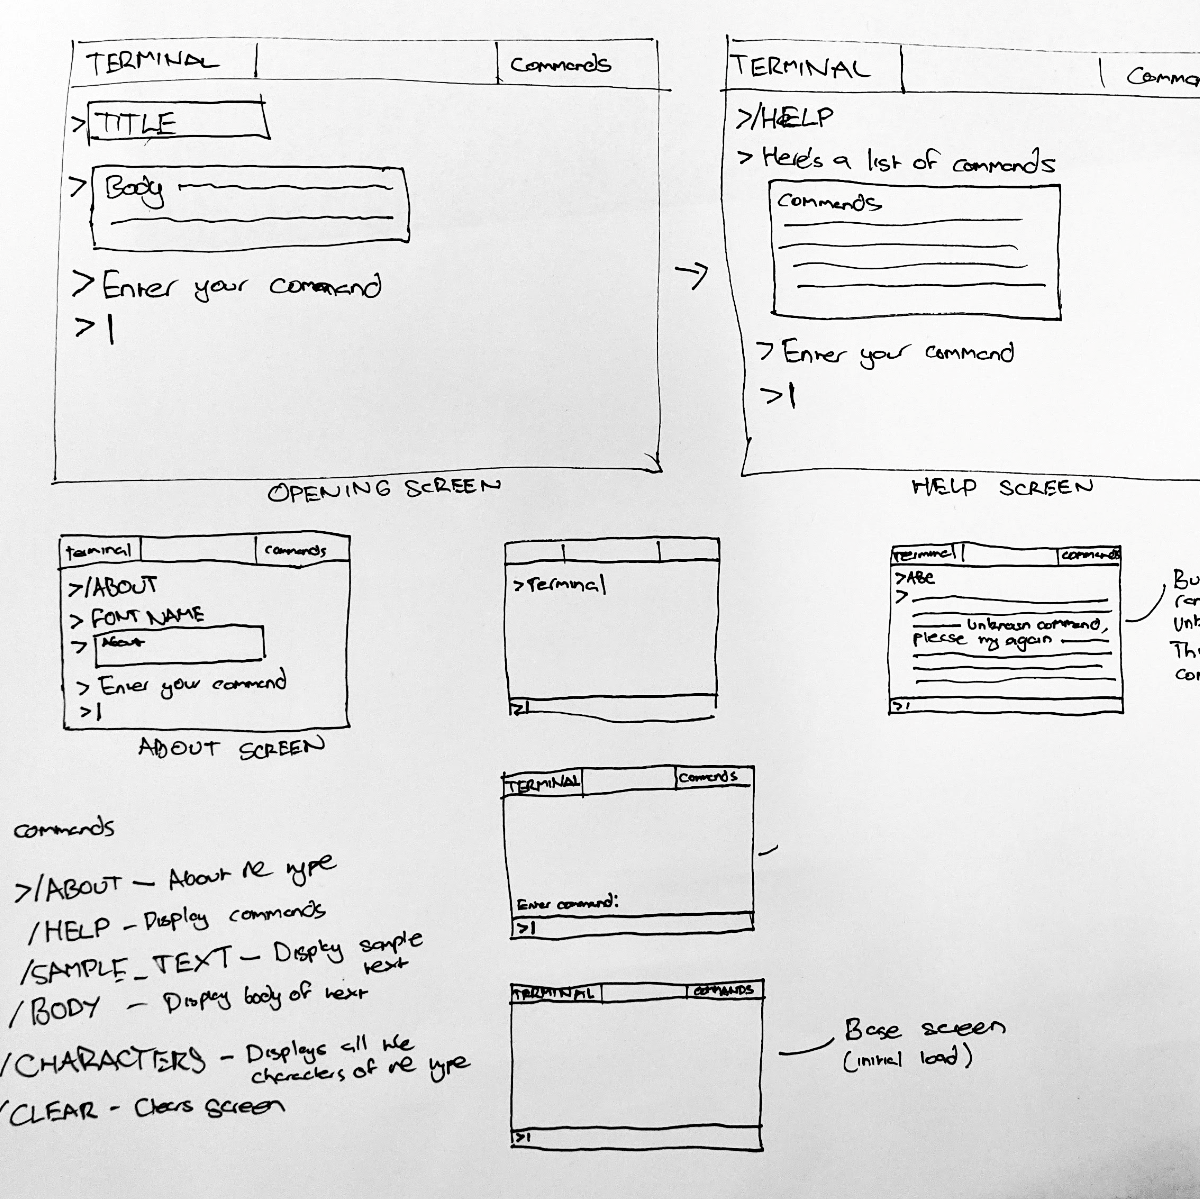 TERMINAL
Commands
> TITLE
> Body
> Enter your command
>|
OPENING SCREEN
TERMINAL
Comma
>/HELP
> Here's a list of commands
Commands
> Enter your command
>|
HELP SCREEN
terminal
commands
>/ABOUT
> FONT NAME
> About
> Enter your command
>|
ABOUT SCREEN
>Terminal
>|
Terminal
commands
>ABC
>
Unknown command,
please try again
>|
Bu
ran
Unk
Thi
con
TERMINAL
Commands
Enter command:
>|
TERMINAL
COMMANDS
>|
Base screen
(initial load)
commands
>/ABOUT – About the type
/HELP – Display commands
/SAMPLE_TEXT – Display sample
text
/BODY – Display body of text
/CHARACTERS – Displays all the
characters of the type
/CLEAR – Clears screen